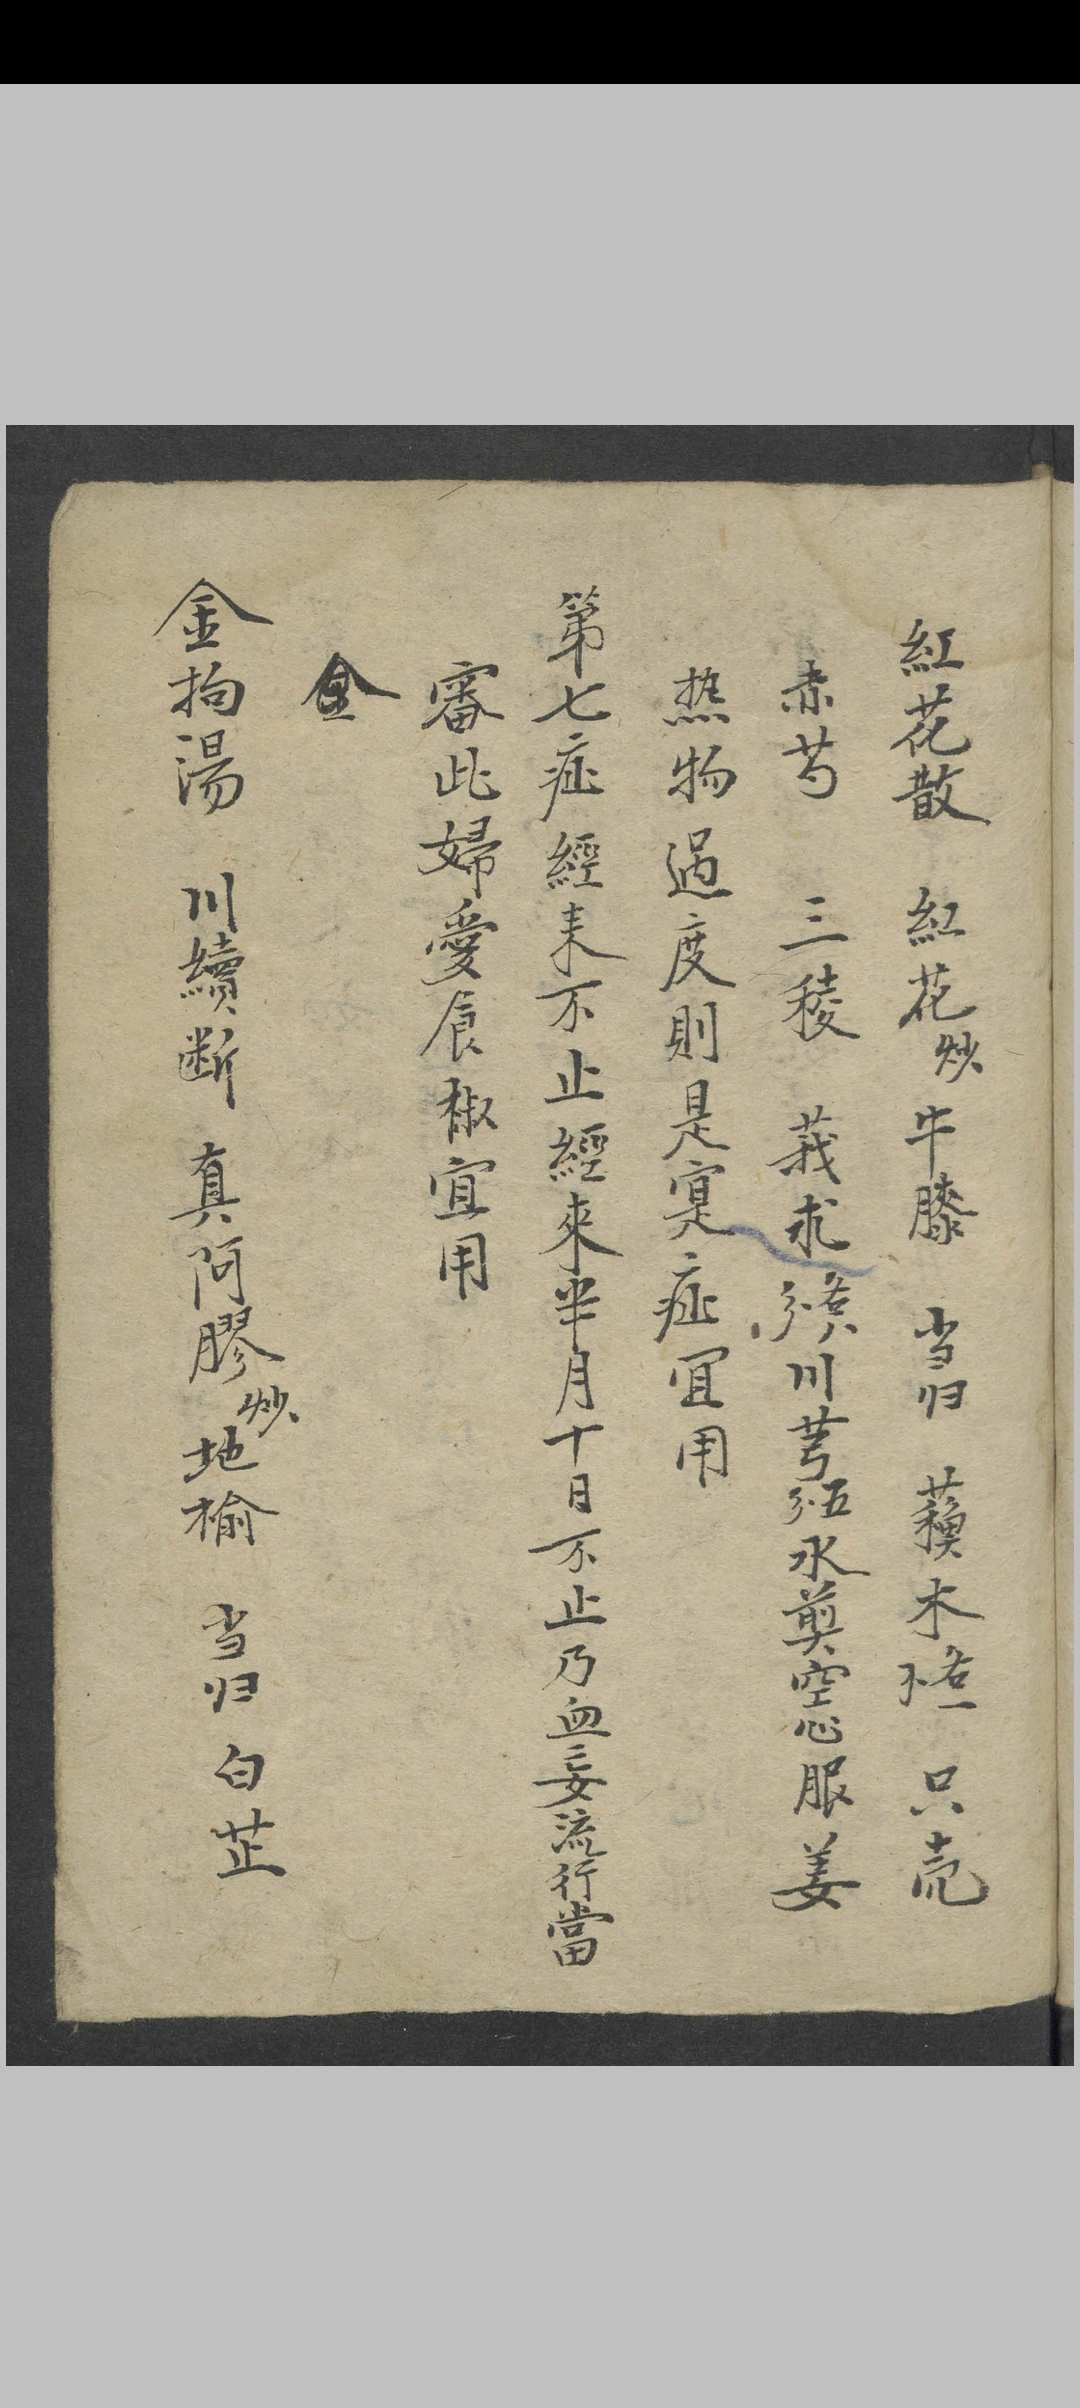 紅花散 紅花炒 牛膝 当归 蘓木各一不 只壳
赤芍 三稜 莪朮各八分 川芎五分 水煎空心服 姜
热物過度則是寔症宜用
第七症經耒不止經來半月十日不止乃血妄流行當
審此婦愛食椒宜用
金
金拘湯 川續断 真阿膠炒 地榆 当归 白芷